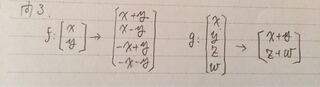 問3.
f: [x y] → [x+y x-y -x+y -x-y]
g: [x y z w] → [x+y z+w]